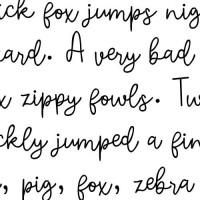 ick fox jumps nig
ard. A very bad
x zippy fowls. Tw
ckly jumped a fin
, pig, fox, zebra